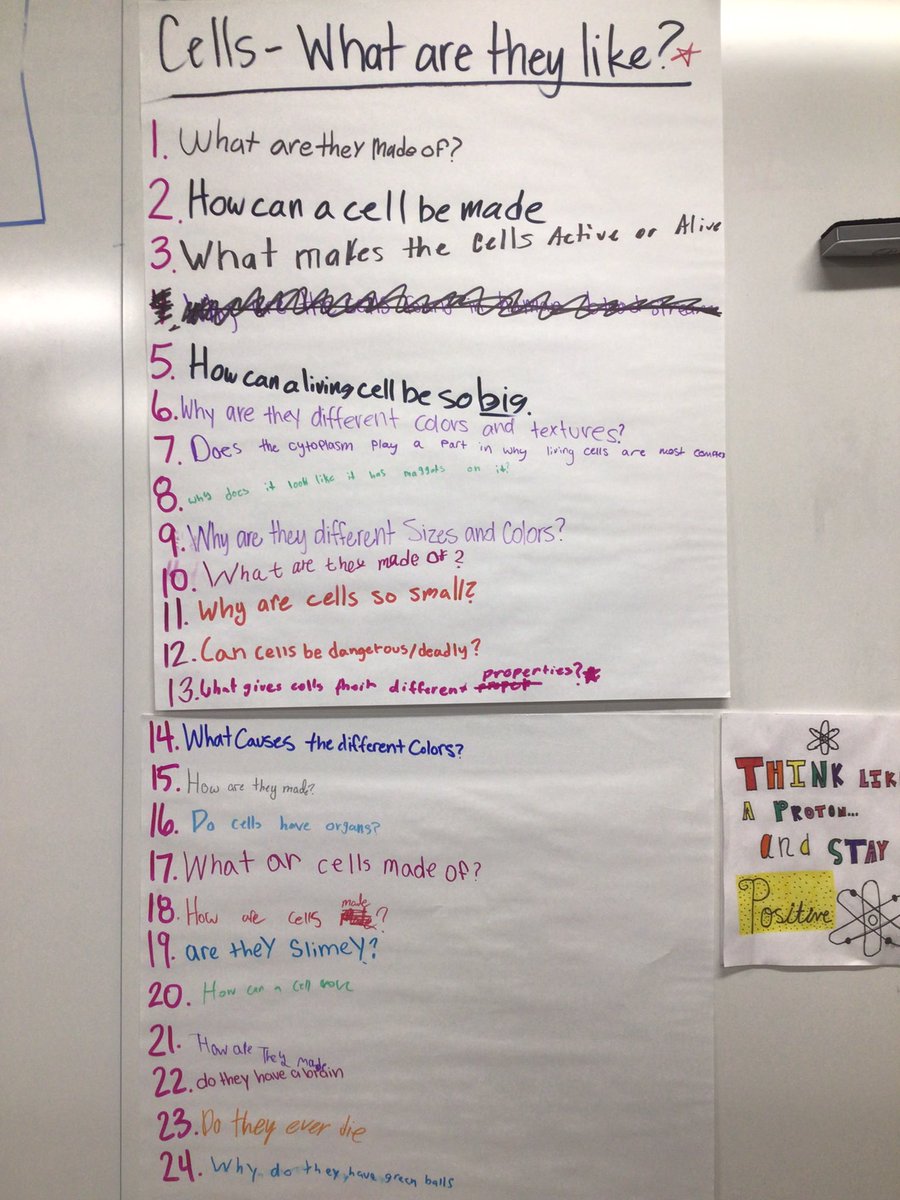 Cells - What are they like?
1. What are they Made of?
2. How can a cell be made
3. What makes the cells Active or Alive
5. How can a living cell be so big.
6. Why are they different colors and textures?
7. Does the cytoplasm play a part in why living cells are most
8. why does it look like it has maggots on it?
9. Why are they different Sizes and Colors?
10. What are they made of?
11. Why are cells so small?
12. Can cells be dangerous/deadly?
13. What gives cells their different properties?
14. What Causes the different Colors?
15. How are they made?
16. Do cells have organs?
17. What ar cells made of?
18. How are cells made?
19. are they slimey?
20. How can a cell
21. How are They Made
22. do they have a brain
23. Do they ever die
24. Why do they have green balls
THINK LIK
A PROTON...
and STAY
Positive